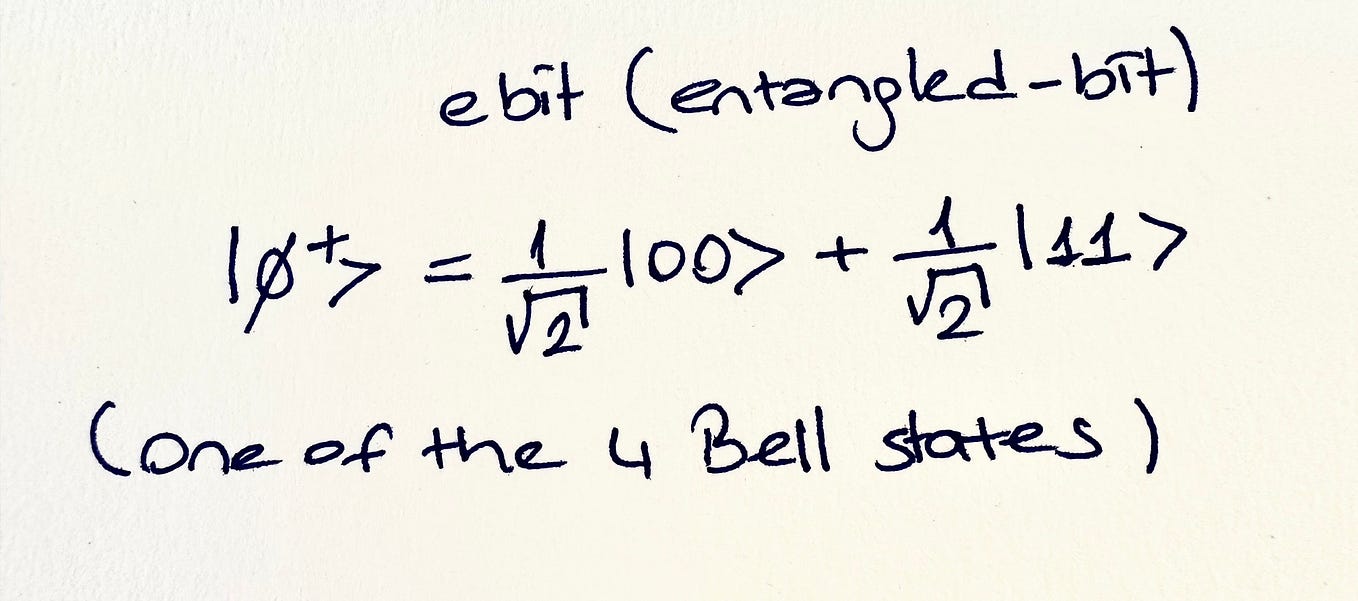 ebit (entangled-bit)
|ϕ⁺> = 1/√2 |00> + 1/√2 |11>
(One of the 4 Bell states)